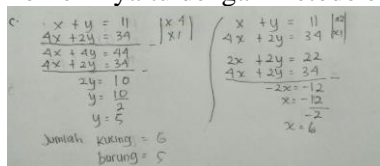 c.
x + y = 11 | x4
4x + 2y = 34 | x1
4x + 4y = 44
4x + 2y = 34 -
2y = 10
y = 10
2
y = 5
Jumlah kucing = 6
burung = 5
x + y = 11 | x2
4x + 2y = 34 | x1
2x + 2y = 22
4x + 2y = 34 -
-2x = -12
x = -12
-2
x = 6